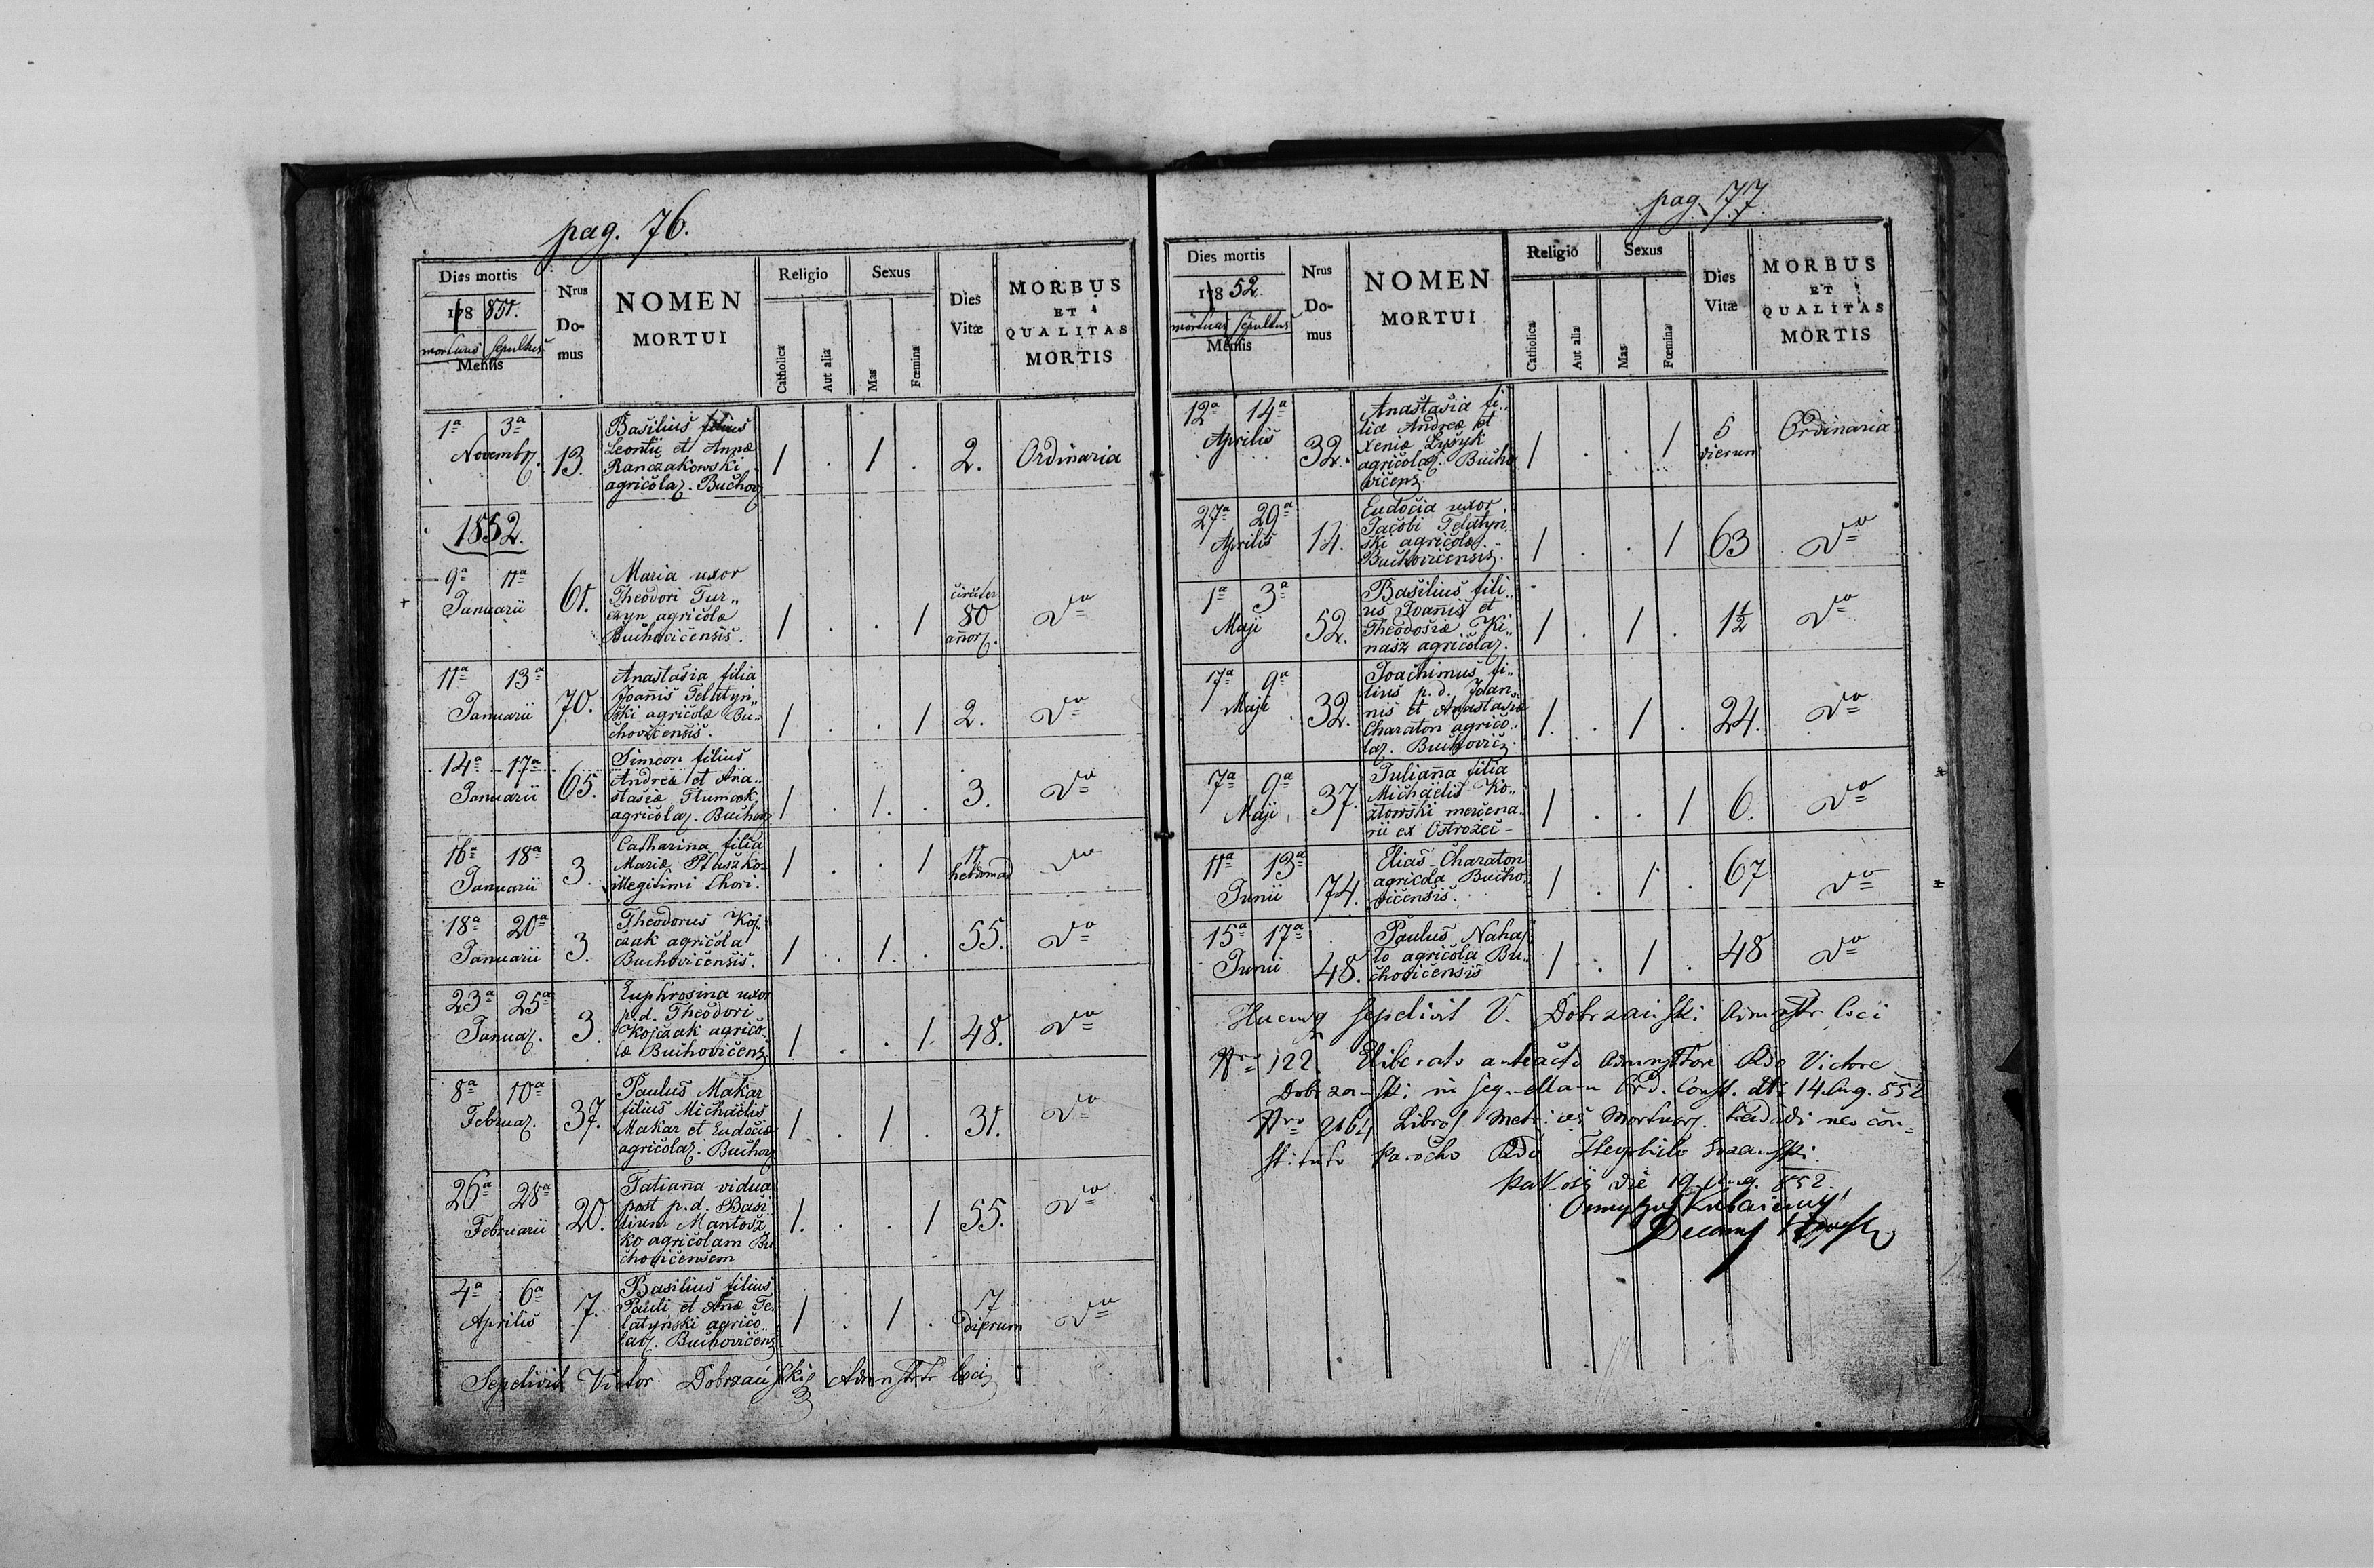 pag. 76.
Dies mortis
178 851.
mortuus sepultus
Mensis
Nrus
Do-
mus
NOMEN
MORTUI
Religio
Catholica
Aut alia
Sexus
Mas
Fœmina
Dies
Vitæ
MORBUS
ET
QUALITAS
MORTIS
1a 3a
Novembr.
13.
Basilius filius
Leontii et Annæ
Ranczakowski
agricolar. Buchov
1 . 1 . 2. Ordinaria
1852.
9a 11a
Januarii
61.
Maria uxor
Theodori Tur„
czyn agricolæ
Buchovicensis.
1 . . 1
circiter
80
annor.
Do
11a 13a
Januarii
70.
Anastasia filia
Joannis Telatyń„
ski agricolæ Bu„
chovicensis.
1 . . 1 2. Do
14a 17a
Januarii
65.
Simeon filius
Andreæ et Ana„
stasiæ
agricolar. Buchov
1 . 1 . 3. Do
16a 18a
Januarii
3.
Catharina filia
Mariæ Ptaszko-
illegitimi thori.
1 . . 1
11
hebdomad
Do
18a 20a
Januarii
3.
Theodorus Koj„
czak agricola
Buchovicensis.
1 . 1 . 55. Do
23a 25a
Januar.
3.
Euphrosina uxor
p.d. Theodori
Kojczak agrico„
læ Buchovicens
1 . . 1. 48. Do
8a 10a
Februar.
37.
Paulus Makar
filius Michaëlis
Makar et Eudociæ
agricolar. Buchov
1 . 1 . 31. Do
26a 28a
Februarii
20.
Tatianna vidua
post p.d. Basi„
lium Mantosz
ko agricolam Bu
chovicensem
1. . . 1 55. Do
4a 6a
Aprilis
7.
Basilius filius
Pauli et Annæ Te„
latyński agrico„
lar. Buchovicens
1 . 1 .
17
dierum
Do
Sepelivit Victor Dobrzański Admstr loci
pag. 77
Dies mortis
178 52.
mortuus sepultus
Mensis
Nrus
Do-
mus
NOMEN
MORTUI
Religio
Catholica
Aut alia
Sexus
Mas
Fœmina
Dies
Vitæ
MORBUS
ET
QUALITAS
MORTIS
12a 14a
Aprilis
32.
Anastasia fi„
lia Andreæ et
Xeniæ Łysyk
agricolar. Bucho
vicens.
1 . . 1
5
dierum
Ordinaria
27a 29a
Aprilis
14.
Eudocia uxor
Jacobi Telatyn
ski agricolæ
Buchovicensis.
1 . . 1 63 Do
1a 3a
Maji
52.
Basilius fili„
us Joannis et
Theodosiæ Ki„
nasz agricolar.
1 . 1 . 1½ Do
7a 9a
Maji
32.
Joachimus fi„
lius p.d. Joan„
nis et Anastasiæ
Charaton agrico„
lar. Buchovic.
1. . 1 . 24. Do
7a 9a
Maji
37.
Julianna filia
Michaëlis Ko„
złowski mercena„
rii ex Ostrożec-
1 . . 1 6. Do
11a 13a
Junii
74.
Elias Charaton
agricola Bucho„
vicensis.
1 . 1 . 67 Do
15a 17a
Junii
48.
Paulus Nahaj„
ło agricola Bu„
chovicensis
1 . 1 . 48 Do
Hucusq sepelivit V. Dobrzański Admstr loci
Nro 122. Liberato anteacto Admnstore Rdo Victore
Dobrzanski in sequellam Ord. Const. dto 14 Aug. 852
Nro Libros Metrices Mortuor. tradidi neo con„
stituto Parocho Rdo Theophilo
die 19 Aug. 852.